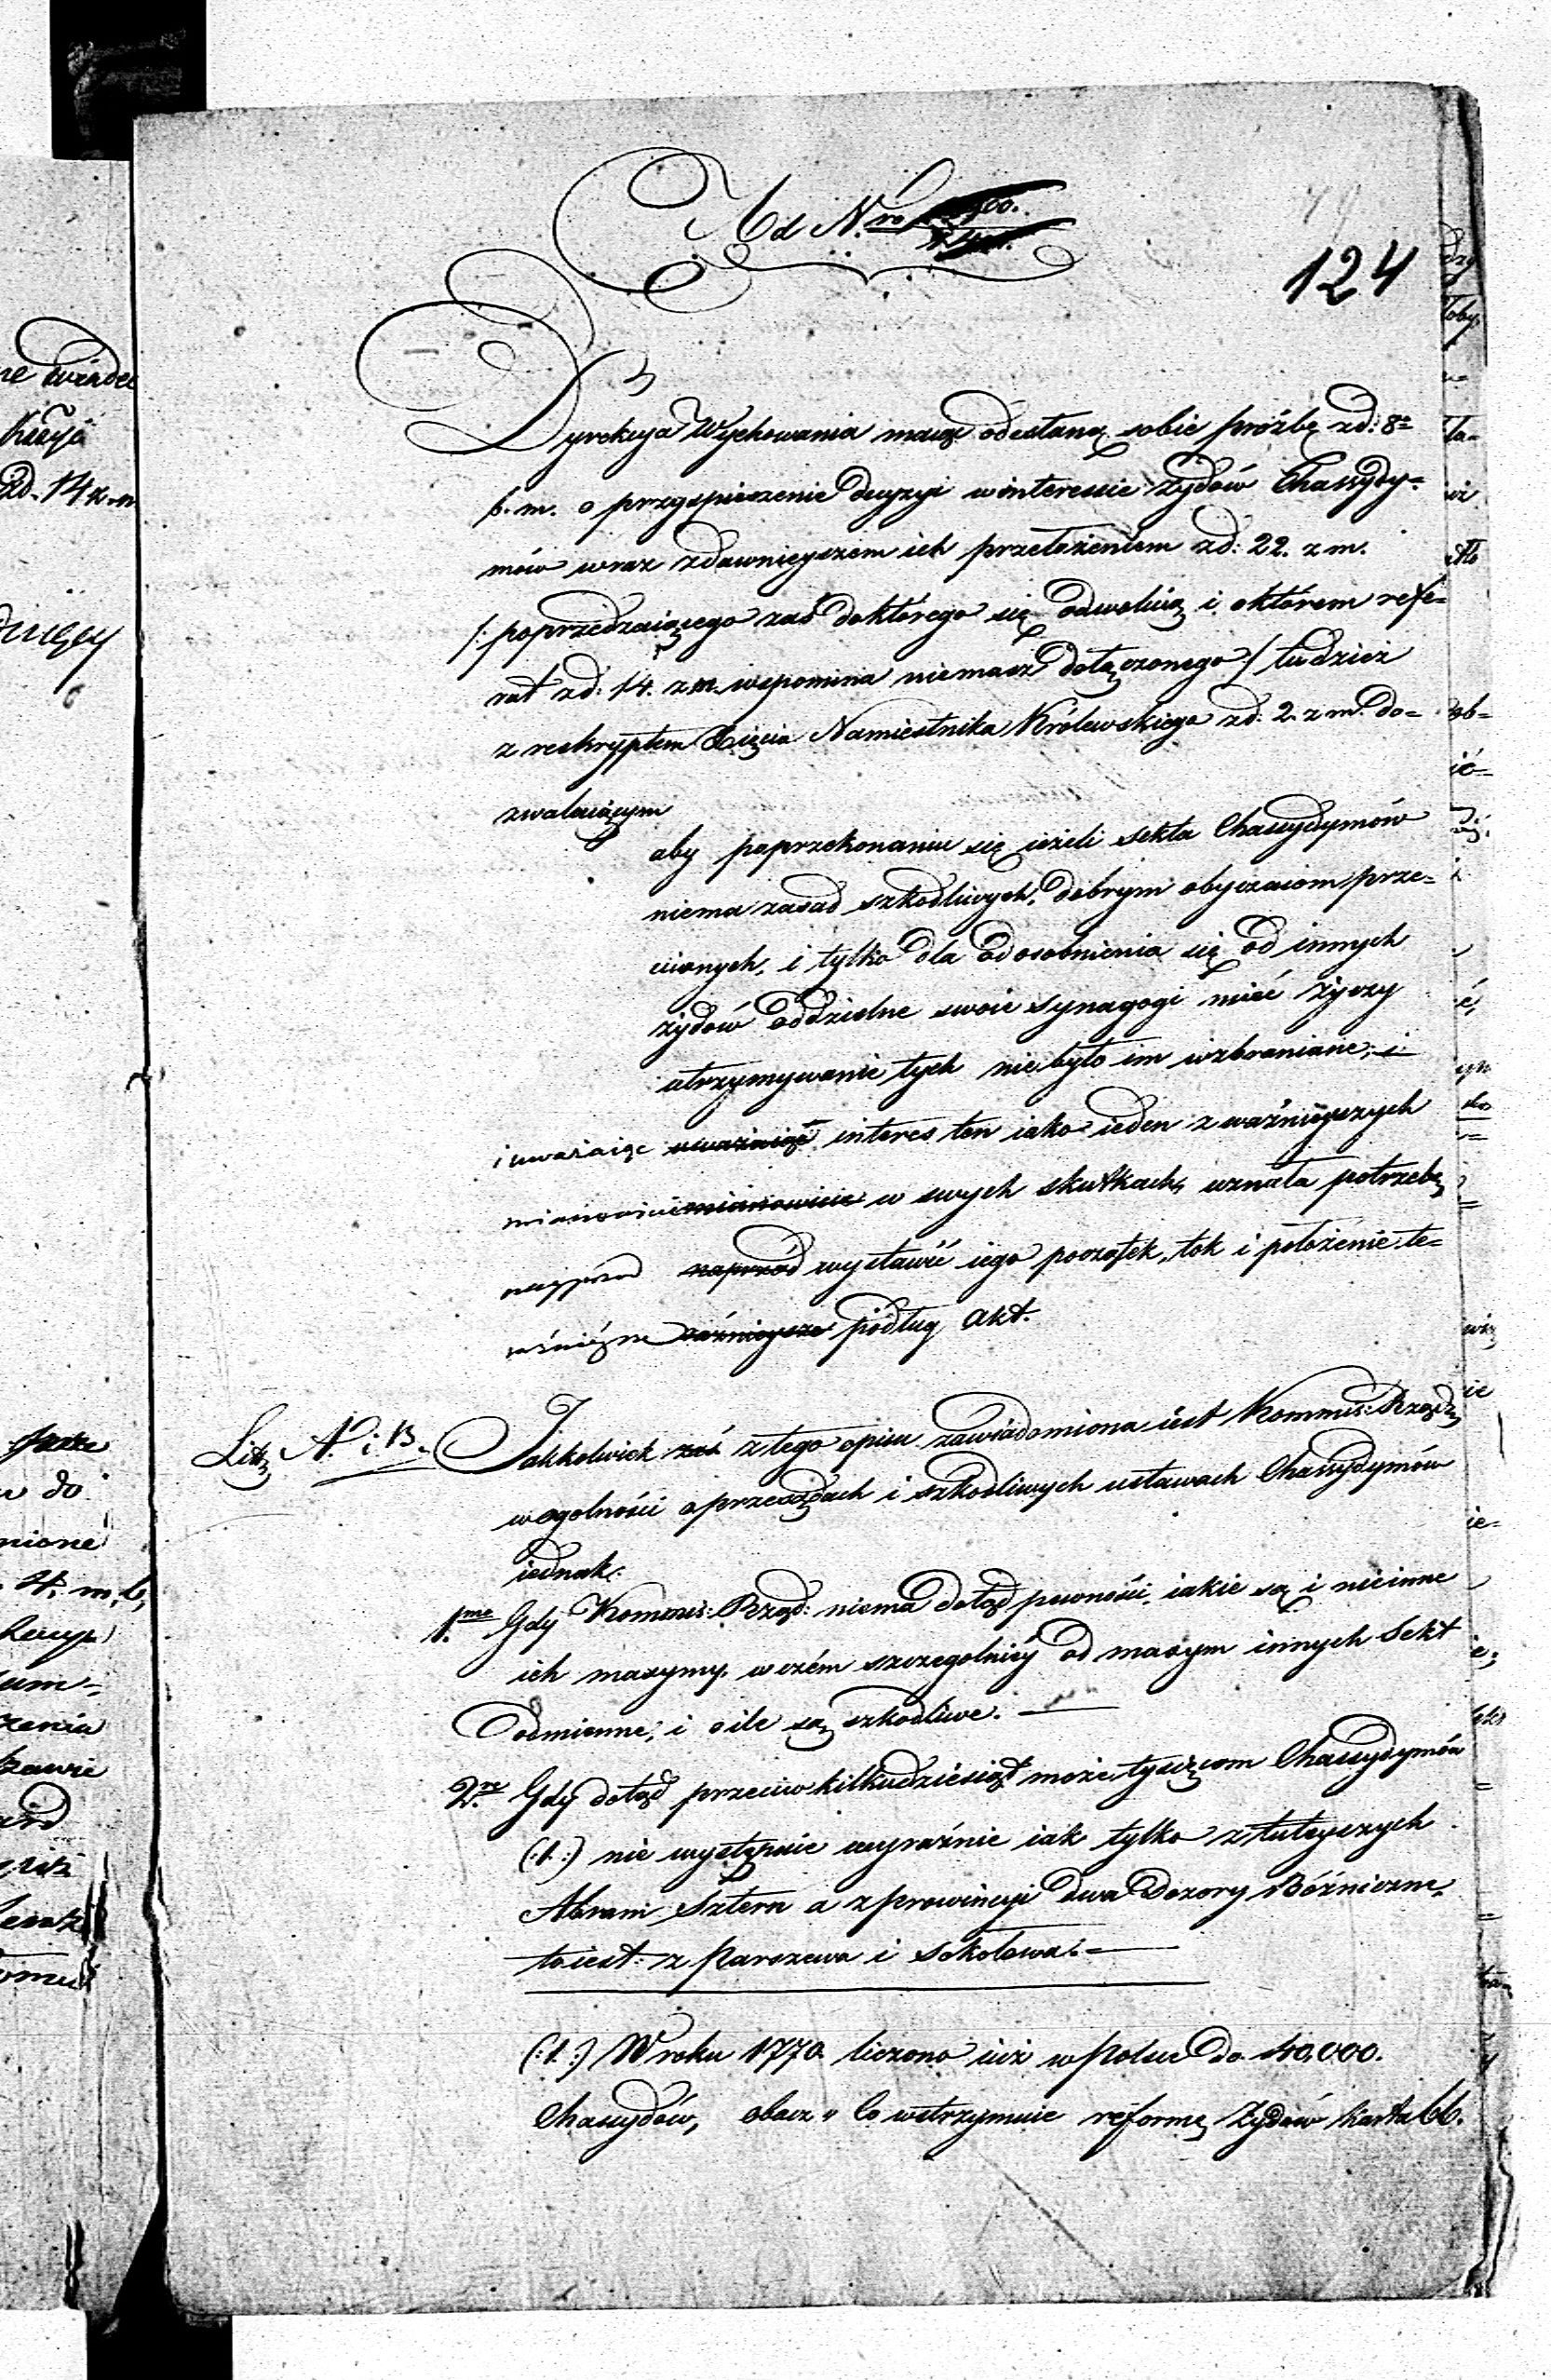 Ad N.ro
124
Dyrekcya Wychowania maiąc odesłaną sobie prózbę z d: 8o
b. m. o przyspieszenie decyzyi w interessie Żydów Chassydy=
mów wraz z dawnieyszem ich przełożeniem z d: 22. z m.
/: poprzedzaiącego zaś do którego się odwołuią i o którem refe=
rat z d: 14. z m. wspomina niemasz dołączonego :/ tudzież
z reskryptem Xięcia Namiestnika Królewskiego z d: 2. z m. do=
zwalaiącym
aby po przekonaniu się ieżeli sekta Chassydymów
niema zasad szkodliwych, dobrym obyczaiom prze=
ciwnych, i tylko dla odosobnienia się od innych
żydów oddzielne swoie synagogi mieć życzy
utrzymywanie tych nie było im wzbraniane; i
i uważaiąc uważaiąc interes ten iako ieden z ważnieyszych
mianowicie mianowicie w swych skutkach, uznała potrzebę
nayprzód naprzód wystawić iego początek, tok i położenie te=
raźnieysze raźnieysze podług akt.
Litt. A. i B. Jakkolwiek zaś z tego opisu zawiadomiona iest Kommis: Rządz:
w ogolności o przesądach i szkodliwych ustawach Chassydymów
iednak:
1.mo Gdy Kommis: Rząd: niema dotąd pewności, iakie są i nie inne
ich maxymy, w czém szczegolniéy od maxym innych Sekt
odmienne, i o ile są szkodliwe. —
2.do Gdy dotąd przeciw kilkudziesiąt może tysiącom Chassydymów
(:1.:) nie występuie wyraźnie iak tylko z tuteyszych
Abram Sztern a z prowincyi dwa Dozory Bóżniczne,
to iest: z Parczewa i Sokołowa. —
(:1.:) W roku 1770 liczono iuż w Polsce do 40,000.
Chassydów, obacz „ Co wstrzymuie reformę Żydów karta 66.